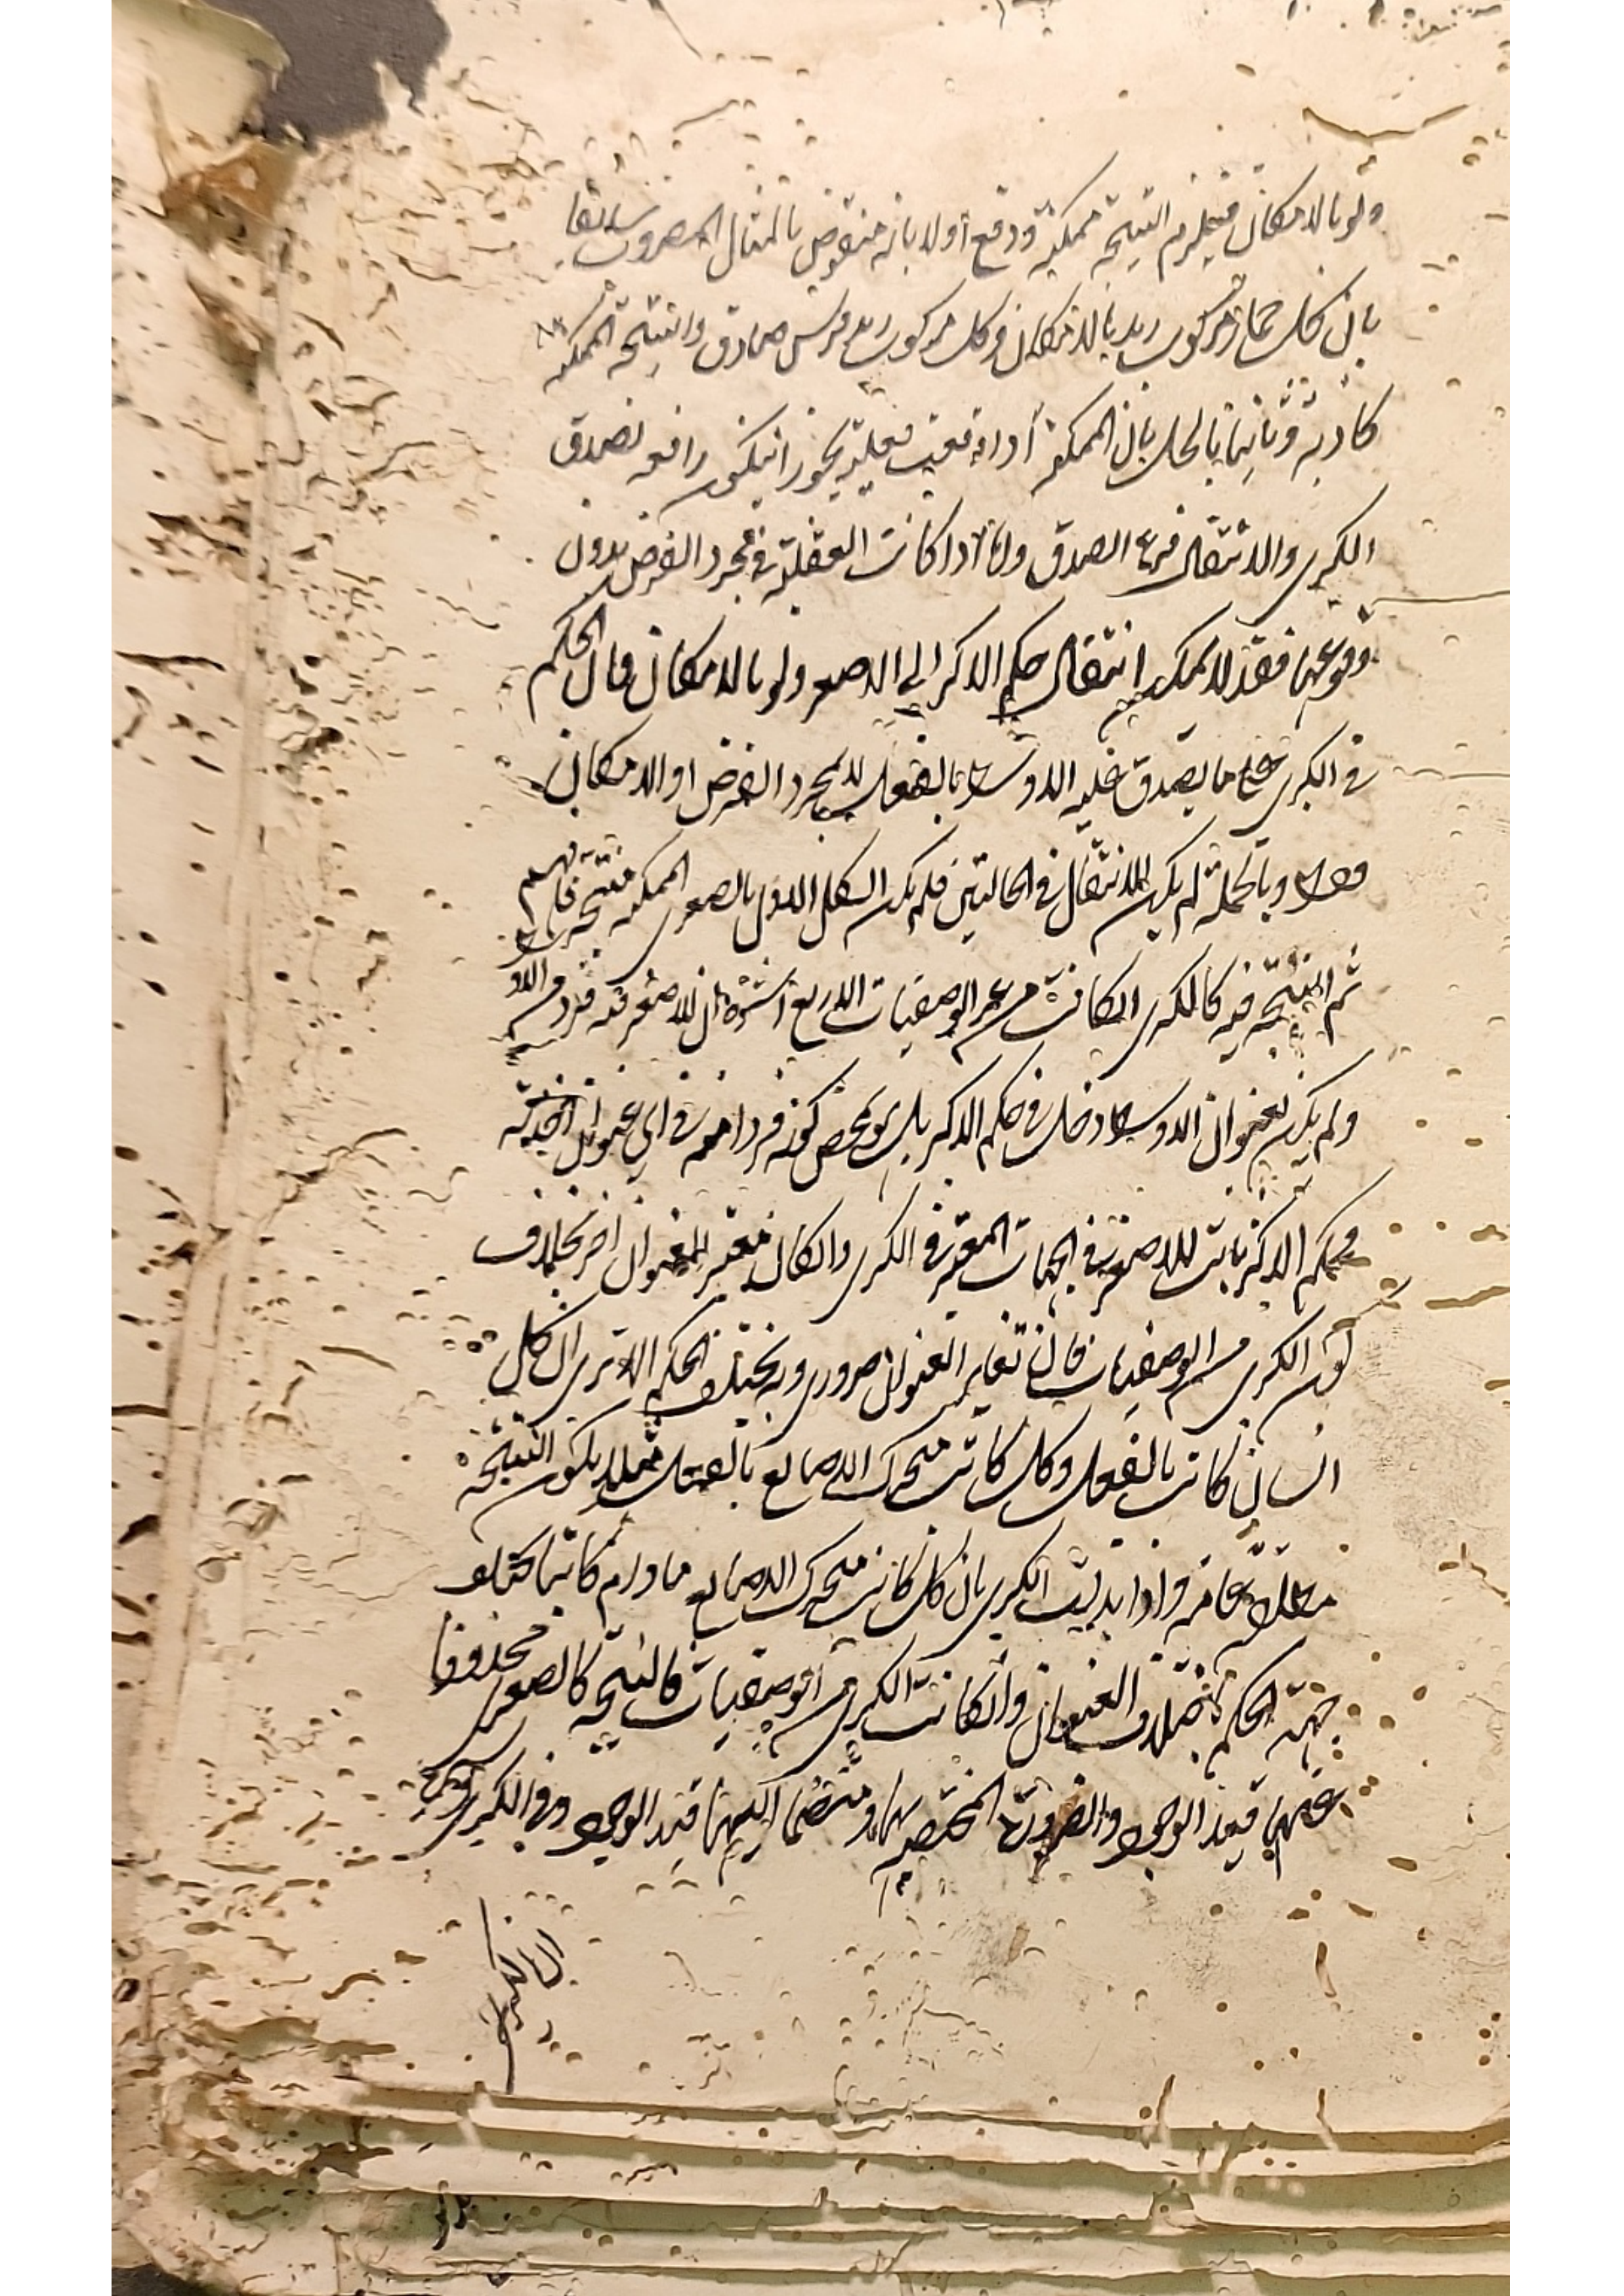 ولو بالامكان فيلزم النتيجة ممكنة ودفع اولا بانه منقوض بالمثال المضروب سابقا
بان كل حمار مركوب زيد بالامكان وكل مركوب زيد فرس صادق والنتيجة الممكنة
كاذبة وثانيا بالحل بان الممكنة اذا وقعت فعلية يجوز ان يكون رافعه لصدق
الكبرى والانتقال فرع الصدق واما اذا كانت الفعلية في مجرد الفرض بدون
وقوعها فقد لا يمكن انتقال حكم الاكبر الى الاصغر ولو بالامكان فان الحكم
في الكبرى على ما يصدق عليه الاوسط بالفعل لا بمجرد الفرض او الامكان
فقط وبالجملة لم يكن الانتقال في الحالتين فلم يكن الشكل الاول بالصغرى الممكنة منتجة فافهم
ثم النتيجة فيه كالكبرى ان كانت من غير الوصفيات الاربع لان الاصغر فرد من الاوسط
ولم يكن لعنوان الاوسط دخل في حكم الاكبر بل هو بمحض كونه فردا منه في اي عنوان اخذته
وحكم الاكبر ثابت للاصغر في الجهات المعتبرة في الكبرى وان كان معتبرا لعنوان اخر بخلاف
كون الكبرى من الوصفيات فان تغاير العنوان ضروري وبه يختلف الحكم الا ترى ان كل
انسان كاتب بالفعل وكل كاتب متحرك الاصابع بالفعل مثلا يكون النتيجة
مطلقة عامة واذا بدلت الكبرى بان كل كاتب متحرك الاصابع ما دام كاتبا تختلف
جهة الحكم لاختلاف العنوان وان كانت الكبرى من الوصفيات فالنتيجة كالصغرى محذوفا
عنها قيد الوجود والضرورة المختصة بها ومنضما اليها قيد الوجود في الكبرى